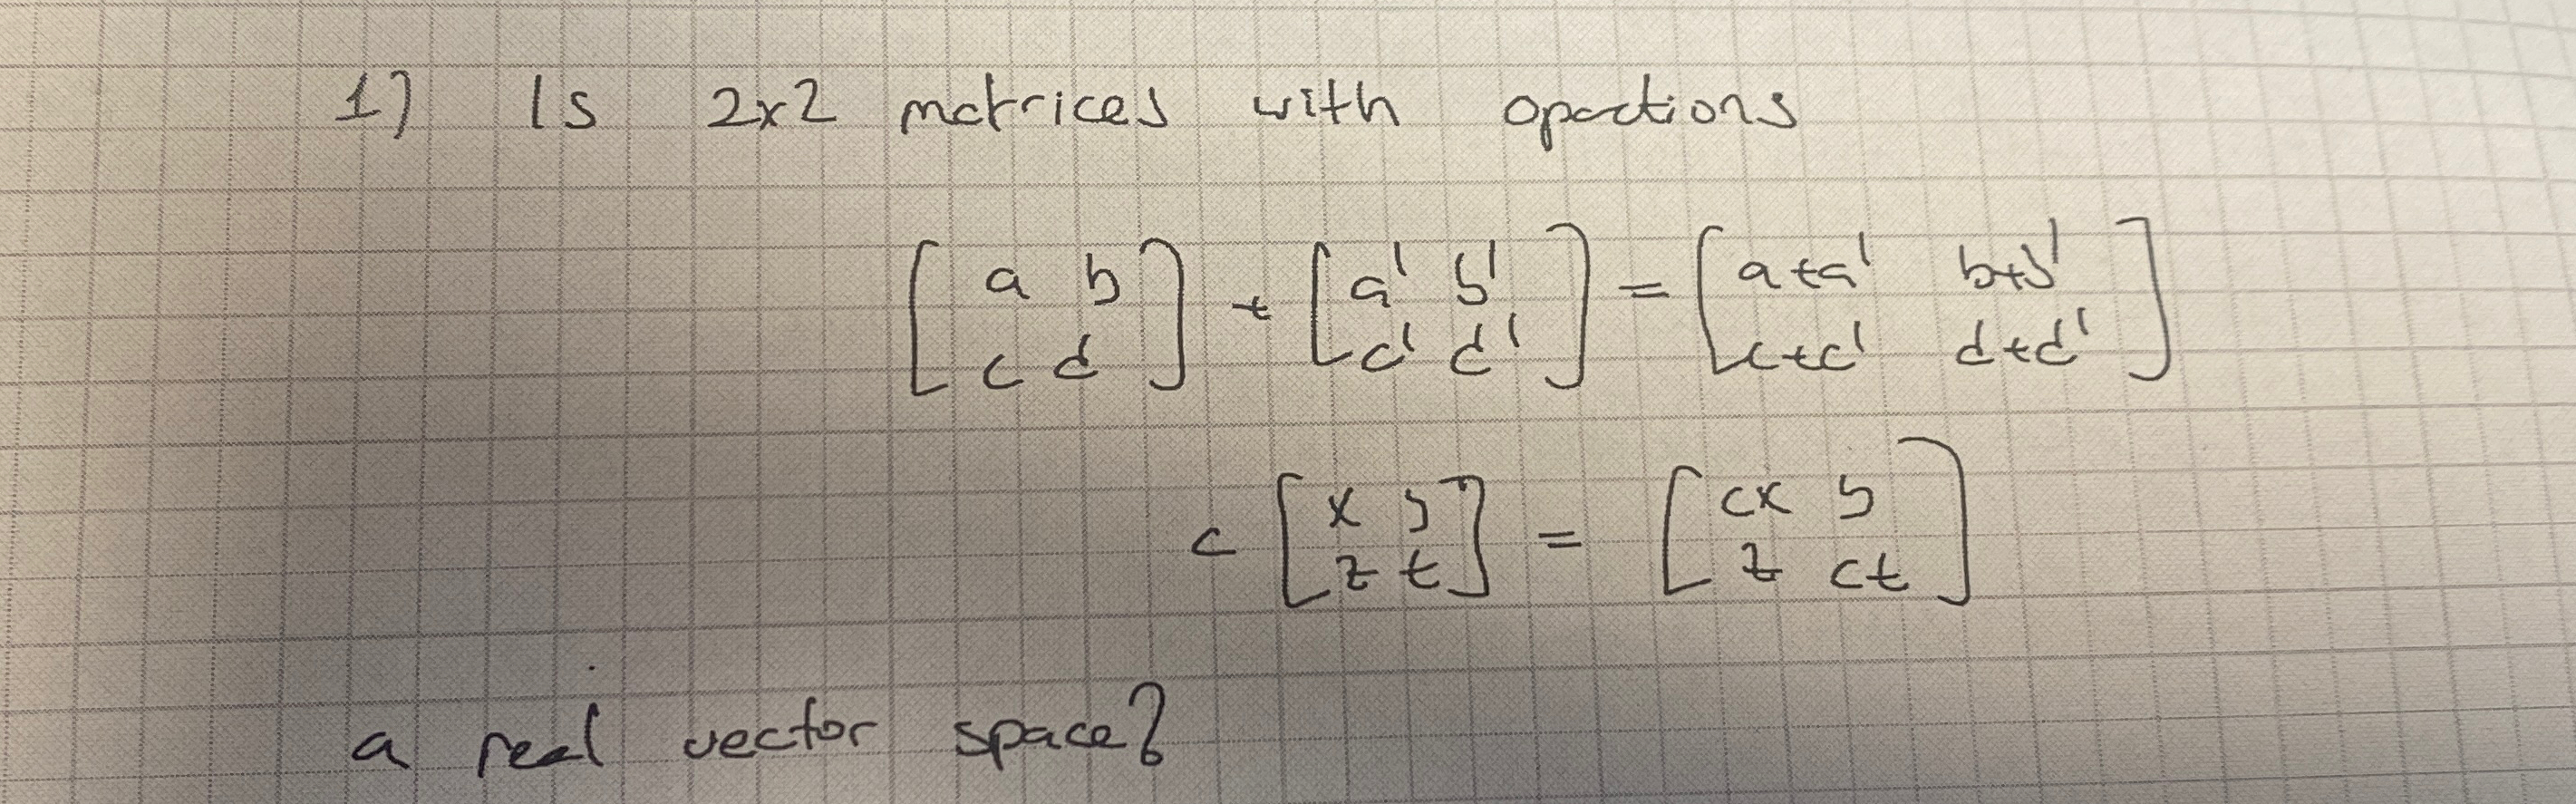 1) Is 2x2 matrices with opactions
[a b
c d] + [a' b'
c' d'] = [a+a' b+b'
c+c' d+d']
c [x y
z t] = [cx y
z ct]
a real vector space?